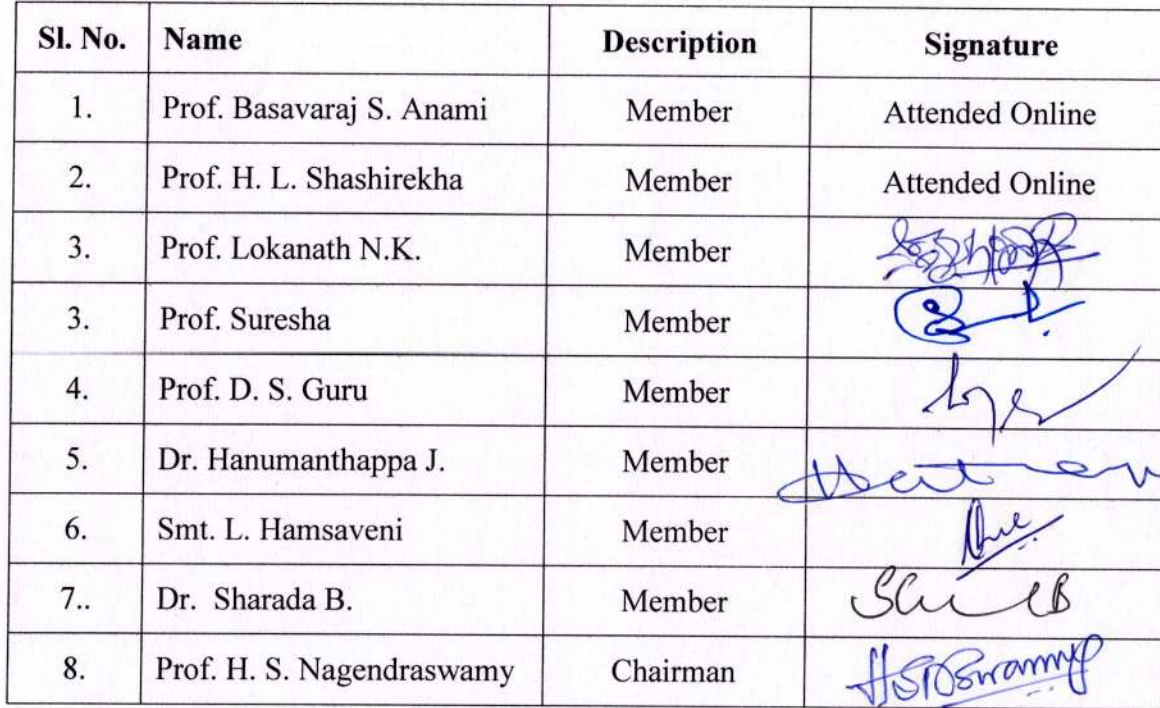 Sl. No. Name Description Signature
1. Prof. Basavaraj S. Anami Member Attended Online
2. Prof. H. L. Shashirekha Member Attended Online
3. Prof. Lokanath N.K. Member
3. Prof. Suresha Member
4. Prof. D. S. Guru Member
5. Dr. Hanumanthappa J. Member
6. Smt. L. Hamsaveni Member
7.. Dr. Sharada B. Member
8. Prof. H. S. Nagendraswamy Chairman